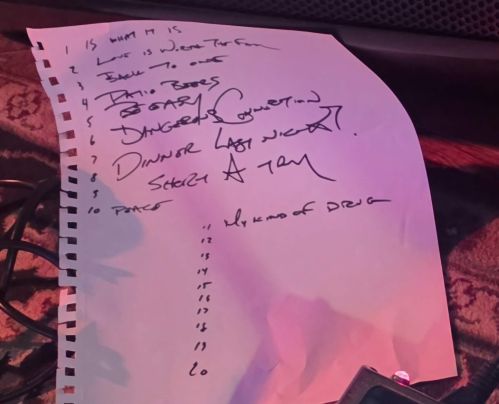 1 IS WHAT IT IS
2 LOVE IS WORTH THE
3 BACK TO ONE
4 PATIO BEERS
5
6 DANGEROUS CONNECTION
7 DINNER LAST NIGHT
8 SHORT A
9
10 PEACE
11 MY KIND OF DRUG
12
13
14
15
16
17
18
19
20